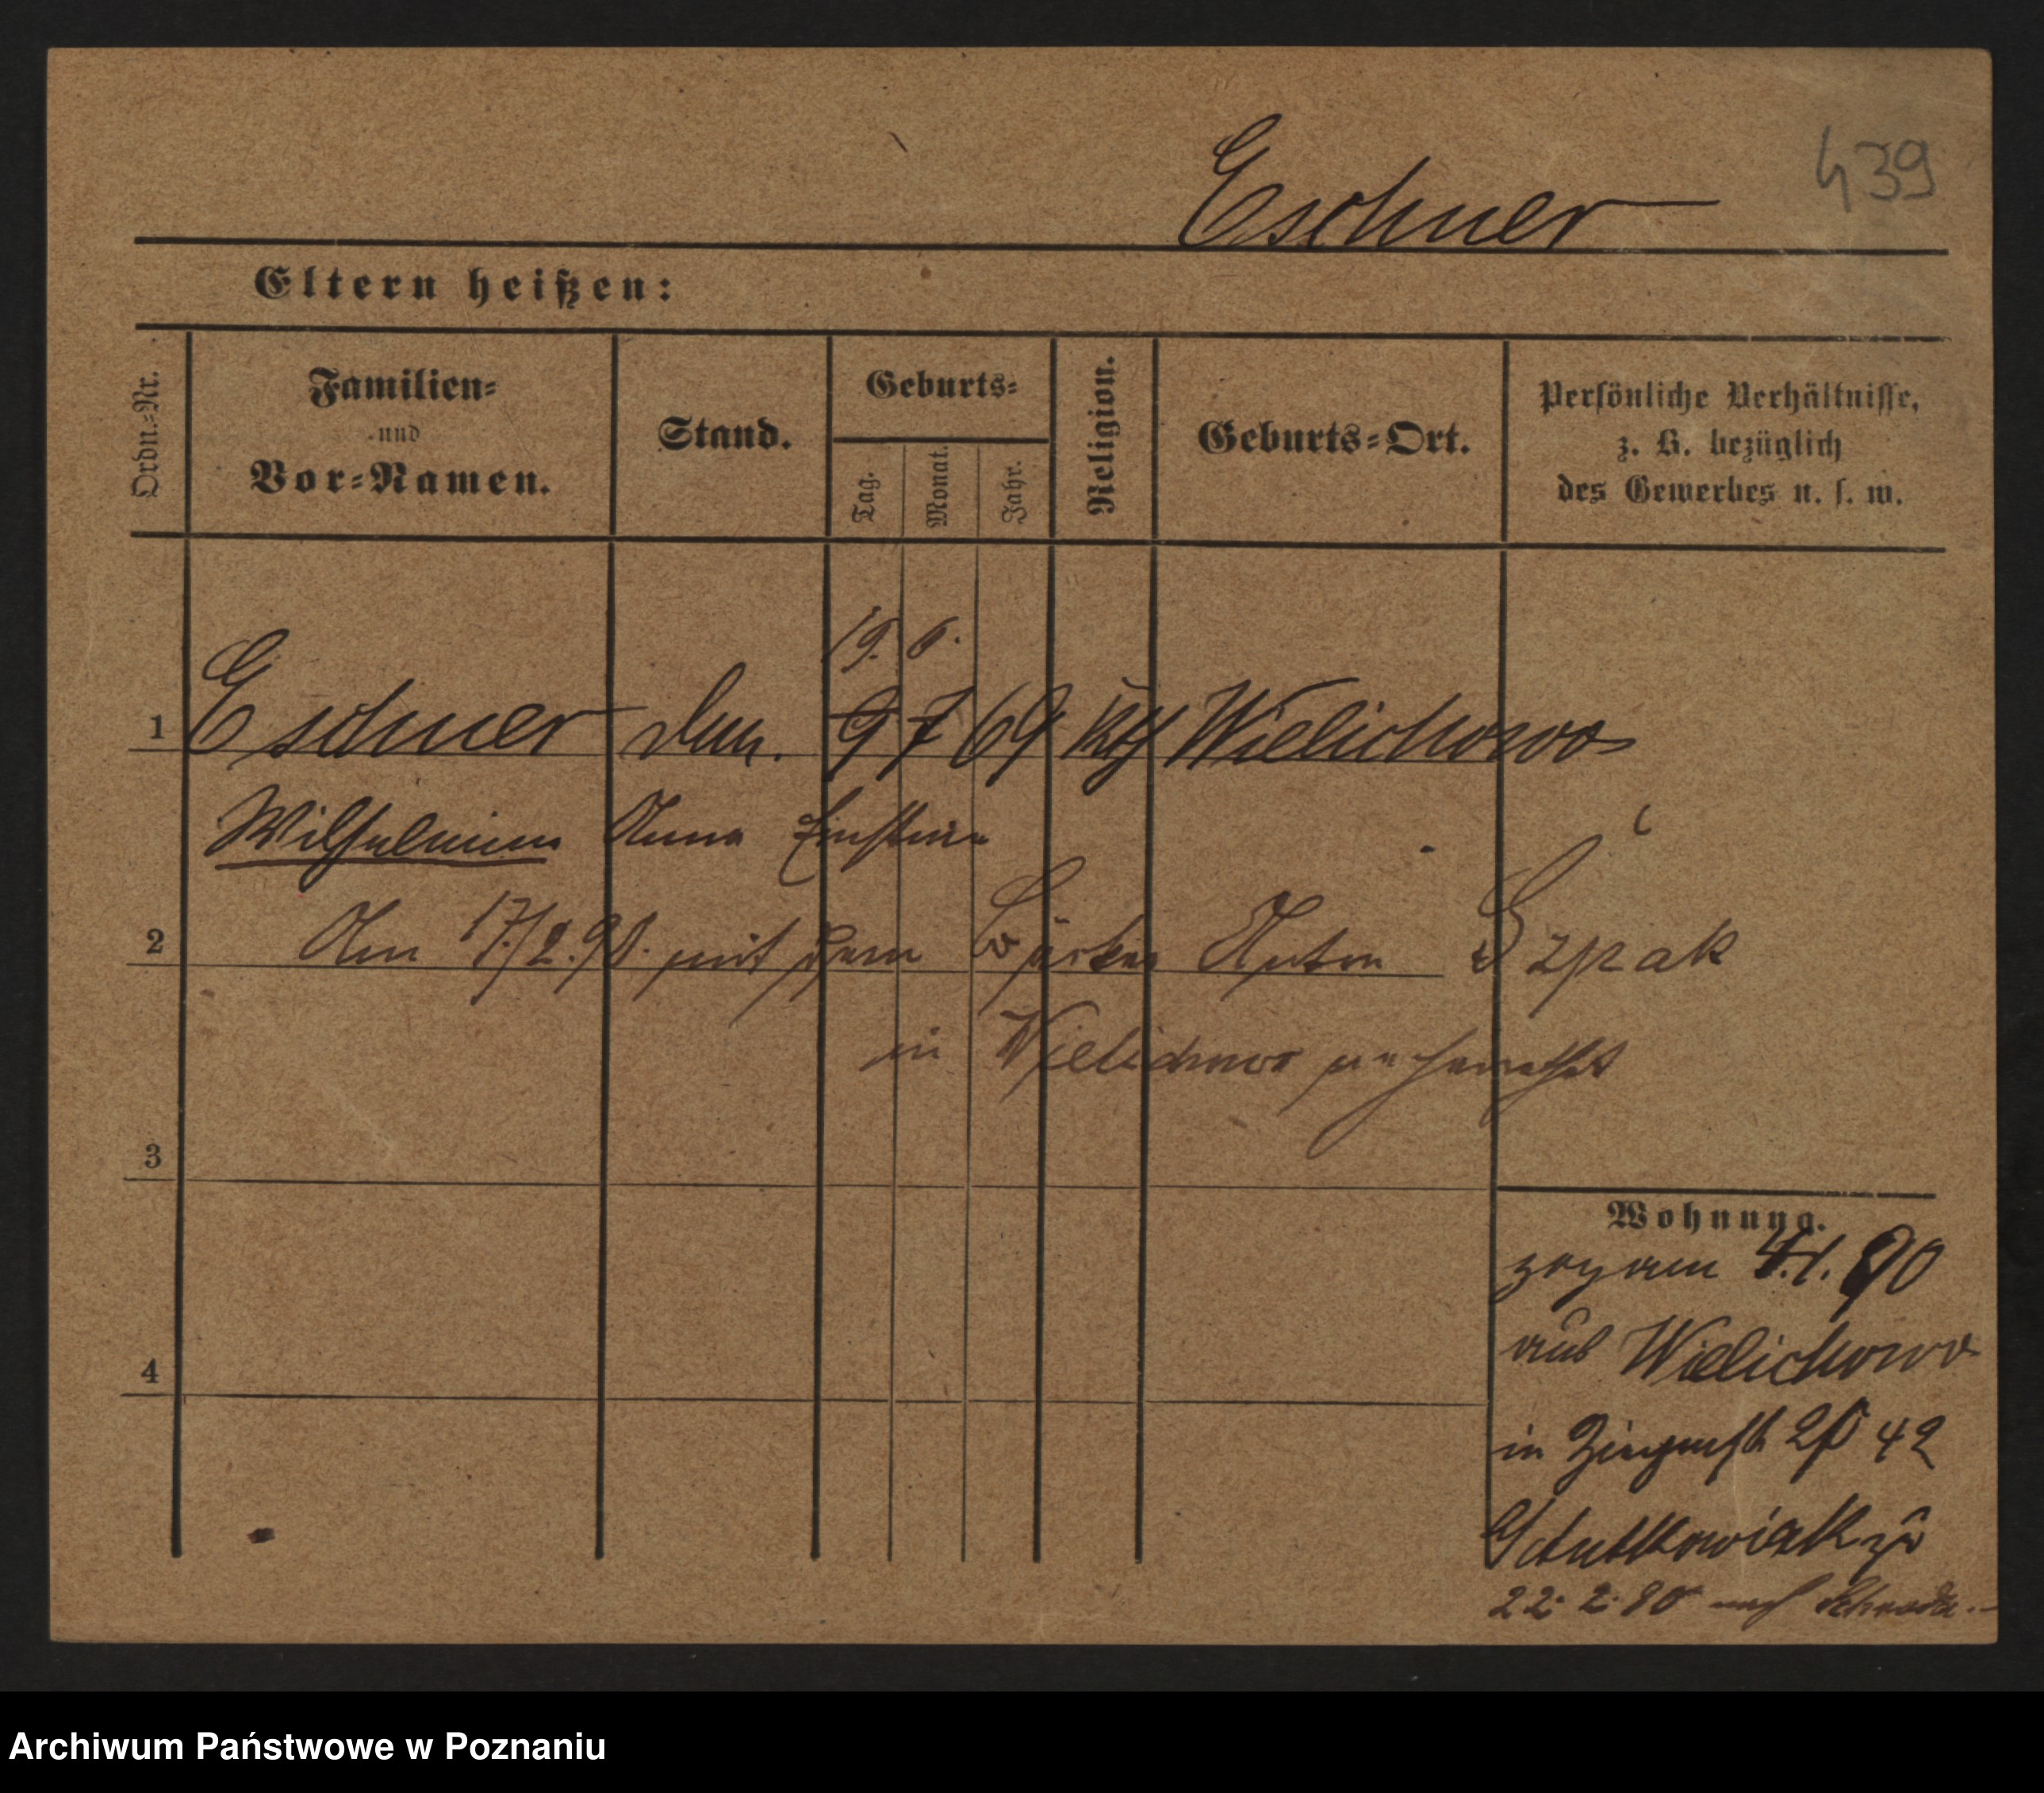 439
Eschner
Eltern heißen:
Ordn.-Nr.
Familien-
und
Vor-Namen.
Stand.
Geburts-
Tag.
Monat.
Jahr.
Religion.
Geburts-Ort.
Persönliche Verhältnisse,
z. B. bezüglich
des Gewerbes u. s. w.
19. 6.
1 Eschner 9 7 69 kth Wielichowo
Wilhelmine Anna
2 Am 17/2.98. mit dem Anton Szpak
in Wielichowo verheirathet
3
Wohnung.
zog am 4.1.90
4
aus Wielichowo
in 42
22. 2. 90 nach Schroda.
Archiwum Państwowe w Poznaniu